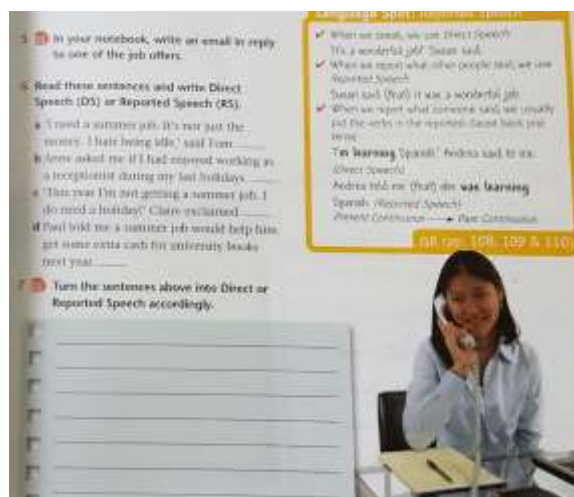 5 In your notebook, write an email in reply
to one of the job offers.
6 Read these sentences and write Direct
Speech (DS) or Reported Speech (RS).
a 'I need a summer job. It's not just the
money. I hate being idle,' said Tom
b Anne asked me if I had enjoyed working as
a receptionist during my last holidays.
c 'This year I'm not getting a summer job. I
do need a holiday!' Claire exclaimed
d Paul told me a summer job would help him
get some extra cash for university books
next year.
7 Turn the sentences above into Direct or
Reported Speech accordingly.
Language Spot: Reported Speech
When we speak, we use Direct Speech
'It's a wonderful job' Susan said.
When we report what other people said, we use
Reported Speech
Susan said (that) it was a wonderful job.
When we report what someone said, we usually
put the verbs in the reported clause back one
tense.
'I'm learning Spanish.' Andrea said to me.
(Direct Speech)
Andrea told me (that) she was learning
Spanish. (Reported Speech)
Present Continuous → Past Continuous
108, 109 & 110